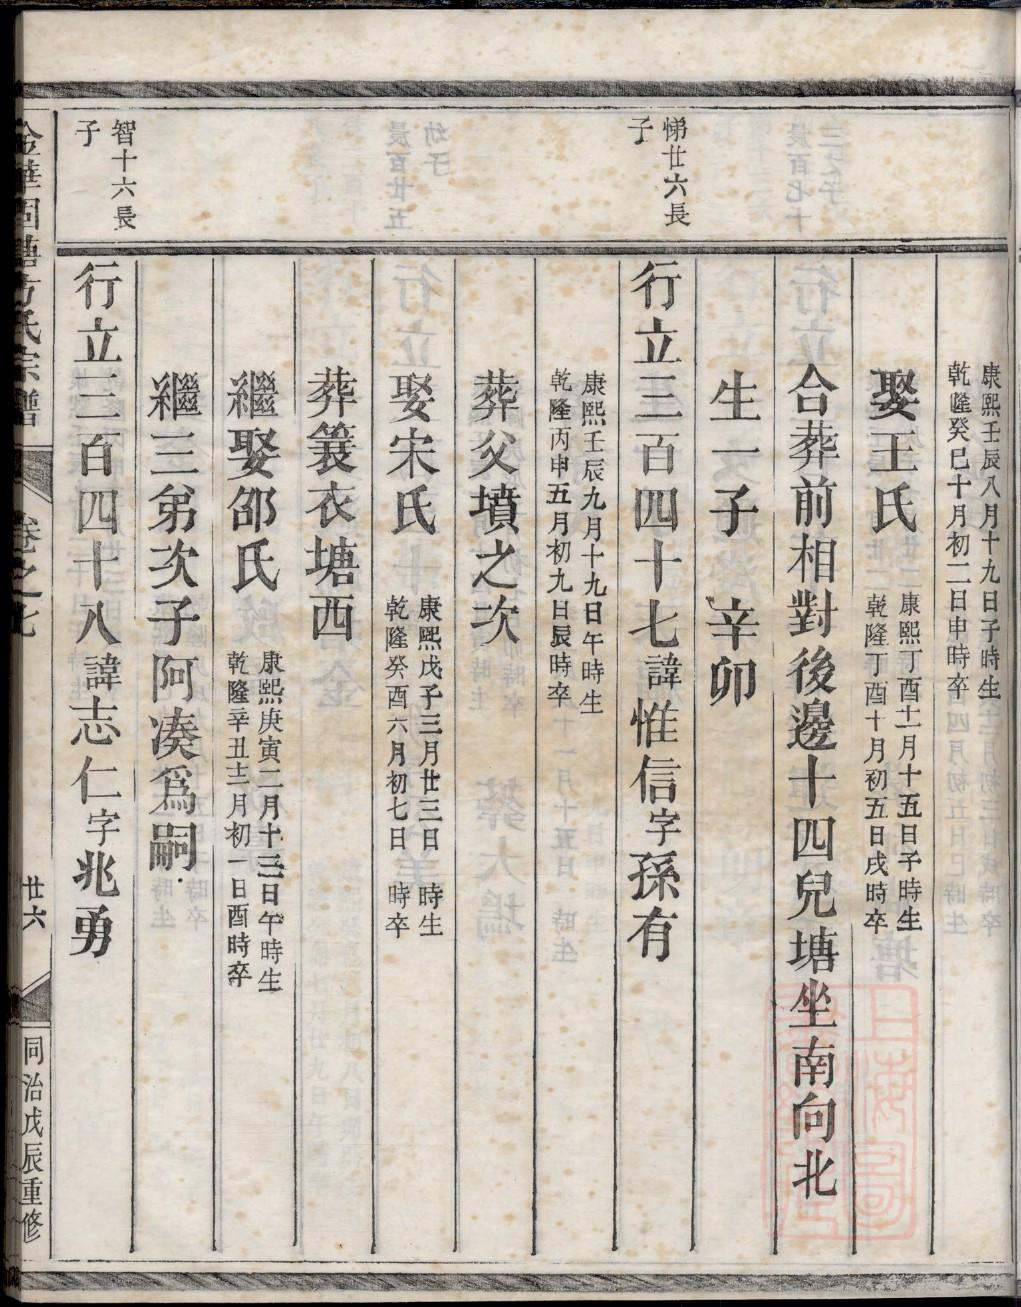 康熙壬辰八月十九日子時生
乾隆癸巳十月初二日申時卒
娶王氏
康熙丁酉十一月十五日子時生
乾隆丁酉十月初五日戌時卒
合葬前相對後邊十四兒塘坐南向北
生一子 辛卯
悌廿六長
子
行立三百四十七諱惟信字孫有
康熙壬辰九月十九日午時生
乾隆丙申五月初九日辰時卒
葬父墳之次
娶宋氏
康熙戊子三月廿三日 時生
乾隆癸酉六月初七日 時卒
葬簑衣塘西
繼娶邵氏
康熙庚寅二月十三日午時生
乾隆辛丑十二月初一日酉時卒
繼三弟次子阿湊爲嗣
智十六長
子
行立三百四十八諱志仁字兆勇
金華固塘方氏宗譜
卷之七
廿六
同治戊辰重修